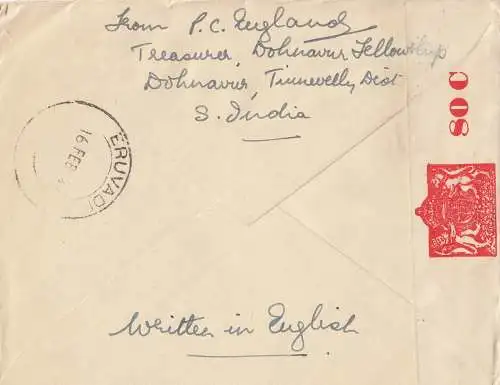 From P.C. England
Treasurer, Dohnavur Fellowship
Dohnavur, Tinnevelly Dist
S. India
ERUVADI
16 FEB
Written in English